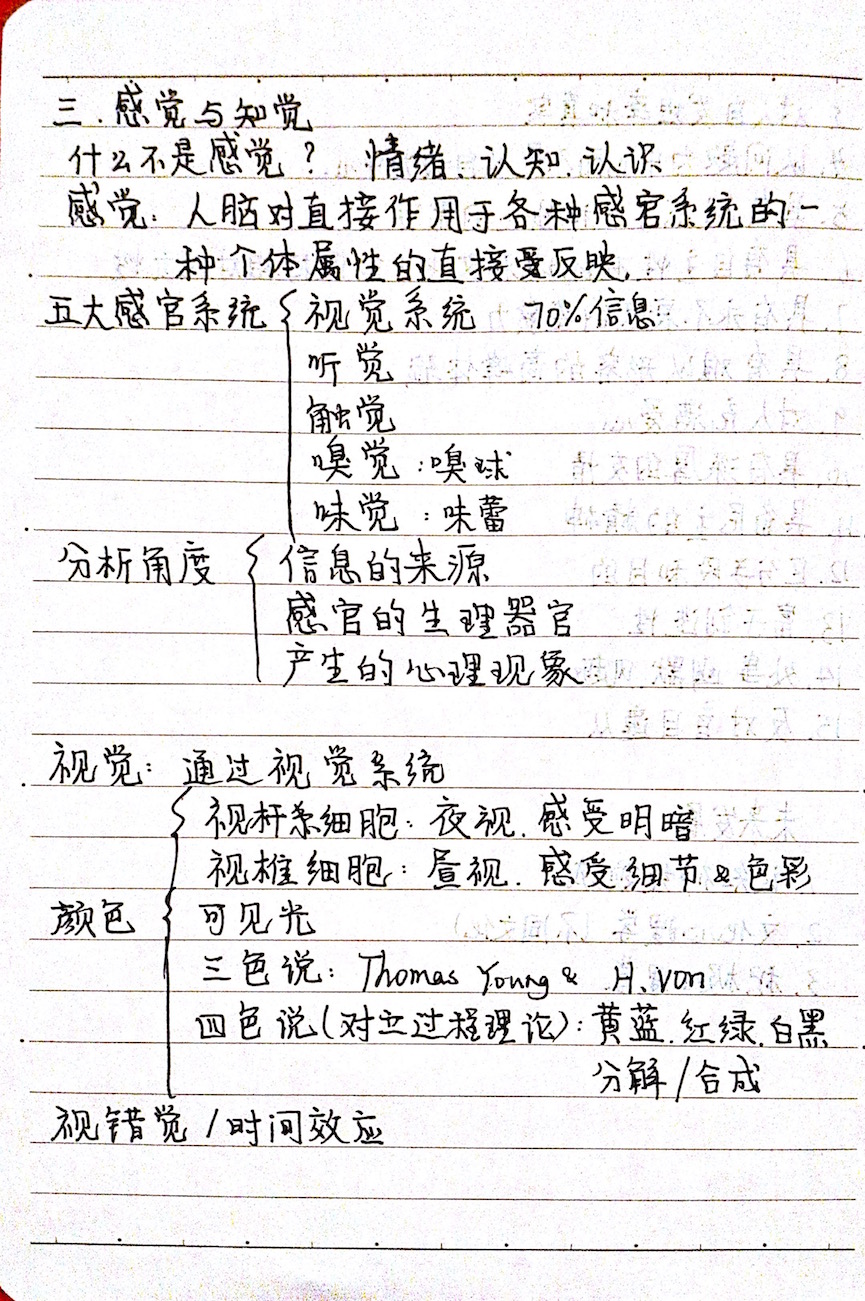 三.感觉与知觉
什么不是感觉? 情绪、认知、认识
感觉:人脑对直接作用于各种感官系统的一
种个体属性的直接受反映.
五大感官系统{视觉系统 70%信息
听觉
触觉
嗅觉:嗅球
味觉:味蕾
分析角度{信息的来源
感官的生理器官
产生的心理现象
视觉:通过视觉系统
视杆系细胞:夜视.感受明暗
视椎细胞:昼视.感受细节&色彩
颜色{可见光
三色说:Thomas Young & H.von
四色说(对立过程理论):黄蓝.红绿.白黑
分解/合成
视错觉/时间效应